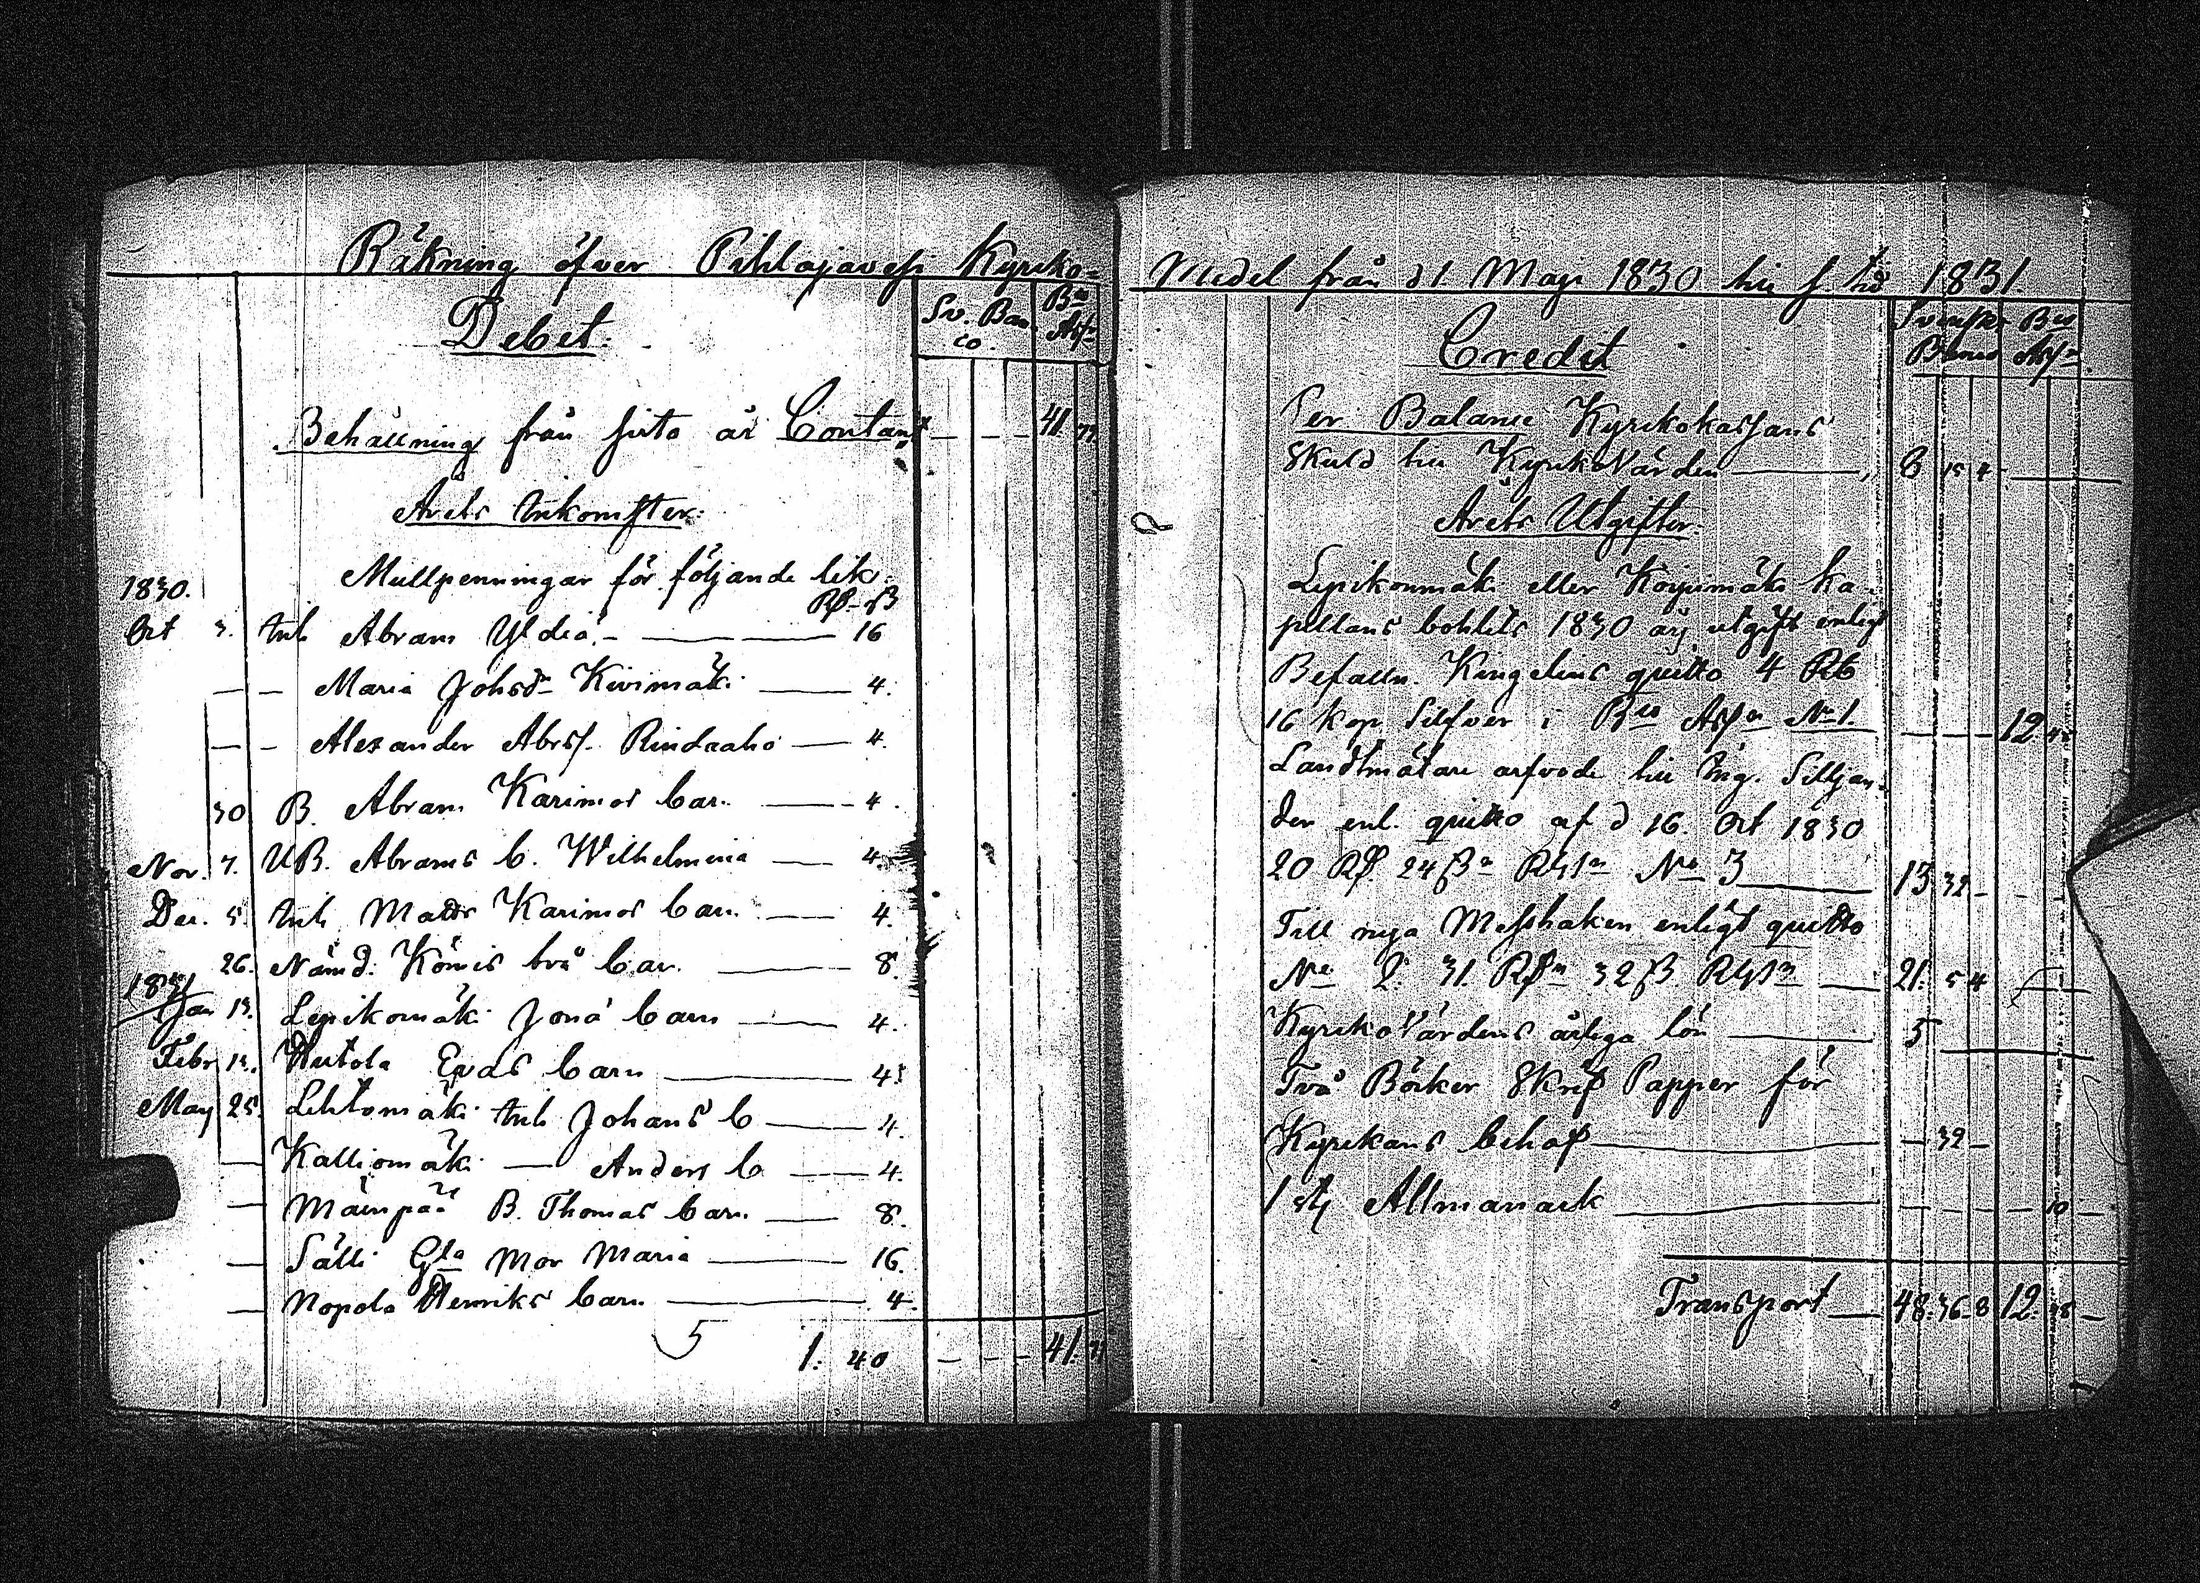 Räkning öfver Pihlajavesi Kyriko-
Debet.
Sv. Ban- Bco
co. Assn
Behållning från sista år Contant - - - 41. 77.
Årets Inkomster:
Mullpenningar för följande lik.
1830. Rd - sk
Oct 3. Inh Abram Yldiä - 16
- - Maria Johsdr Kivimäki - 4.
- - Alexander Abrss. Rindaaho - 4.
30 B. Abram Karimos barn - 4.
Nov. 7. UB. Abrams b. Wilhelmina - 4.
Dec. 5. Inh Matts Karimos barn - 4.
26. Nämd. Kömis två barn - 8.
1831
Jan 13. Lepikomäki Jona barn - 4.
Febr 13. Hutola Evas barn - 4.
May 25. Lehtomäki Inh Johans b - 4.
- Kalliomäki - Anders b - 4.
- Mäenpää B. Thomas barn - 8.
- Sälli Gla Mor Maria - 16.
- Nopola Henriks barn - 4.
5
1. 40 - - - 41. 77
Medel från d 1. Maji 1830 till s. tid 1831.
Credit
Svenska Bco
Banco Assn
Per Balance Kyrikokassans
Skuld till KyrikoVärden - 8 15 4 -
Årets Utgifter.
Lepikonmäki eller Koijumäki Ka-
pellans bohlets 1830 års utgift enligt
Befalln. Kingelins quitto 4 Rb
16 kop Silfver i Bco Assn No 1. - - - 12 48
Landtmätare arfvode till Ing. Silljan-
der enl. quitto af d 16. Oct 1830
20 Rd. 24 sk Rgsn No 3 - 13 32 - - -
Till nya Messhaken enligt quitto
No 2. 31. Rdn 32 sk Rgsn - 21. 5 4 -
KyrikoVärdens årliga lön - 5 -
Två Böcker Skrif Papper för
Kyrikans behof - - 32 -
1 st Allmanack - - - - 10 -
Transport - 48. 36. 8 12. 58 -